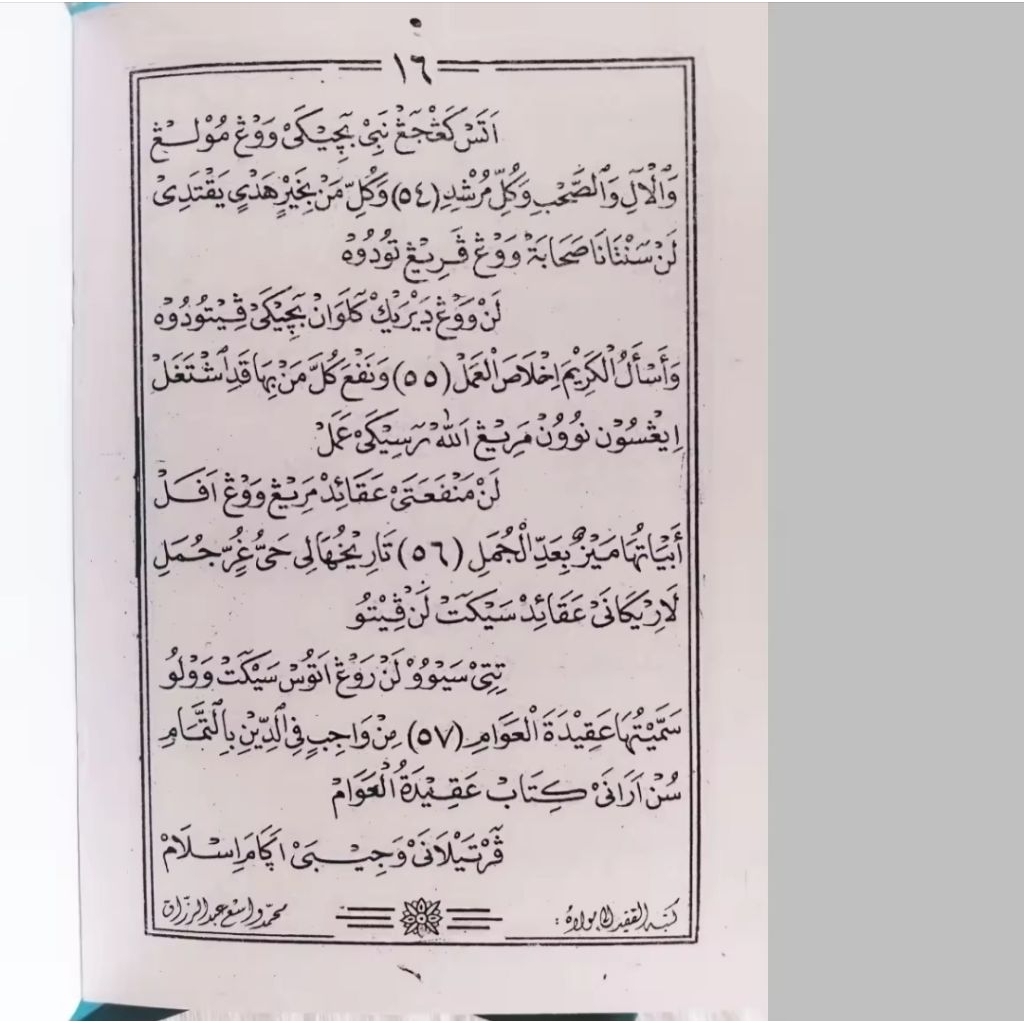 ١٦
اَتَسْ كَڠْجَڠْ نَبِيْ بَچِيْكَيْ وَوْڠْ مُوْلِڠْ
وَالْآلِ وَالصَّحْبِ وَكُلِّ مُرْشِدِ (٥٤) وَكُلِّ مَنْ بِخَيْرِ هَدْيٍ يَقْتَدِيْ
لَنْ سَنْتَانَا صَحَابَةْ وَوْڠْ ڤَرِيْڠْ تُوْدُوْهْ
لَنْ وَوْڠْ دِيْرَيْكْ كَلَوَانْ بَچِيْكَيْ ڤِيْتُوْدُوْهْ
وَأَسْأَلُ الْكَرِيْمَ اِخْلَاصَ الْعَمَلْ (٥٥) وَنَفْعَ كُلَّ مَنْ بِهَا قَدِ اشْتَغَلْ
اِيڠْسُوْن نُوُوْنْ مَرِيْڠْ اَللهْ رَسِيْكَيْ عَمَلْ
لَنْ مَنْفَعَتَيْ عَقَائِدْ مَرِيْڠْ وَوْڠْ اَفَلْ
أَبْيَاتُهَا مَيْزٌ بِعَدِّ الْجُمَلِ (٥٦) تَارِيْخُهَا لِي حَيُّ غُرٍّ جُمَلِ
لَارِيْكَانَيْ عَقَائِدْ سَيْكَتْ لَنْ ڤِيْتُو
تِتِيْ سَيْوُوْ لَنْ رَوْڠْ اَتُوْسْ سَيْكَتْ وَوْلُو
سَمَّيْتُهَا عَقِيْدَةَ الْعَوَامِ (٥٧) مِنْ وَاجِبٍ فِي الدِّيْنِ بِالتَّمَامِ
سُنْ اَرَانَيْ كِتَابْ عَقِيْدَةُ الْعَوَامْ
ڤَرْتَيْلَانَيْ وَجِيْبَيْ اَڮَامَ اِسْلَامْ
كتبه الفقير الى مولاه : محمد واسع عبد الرزاق